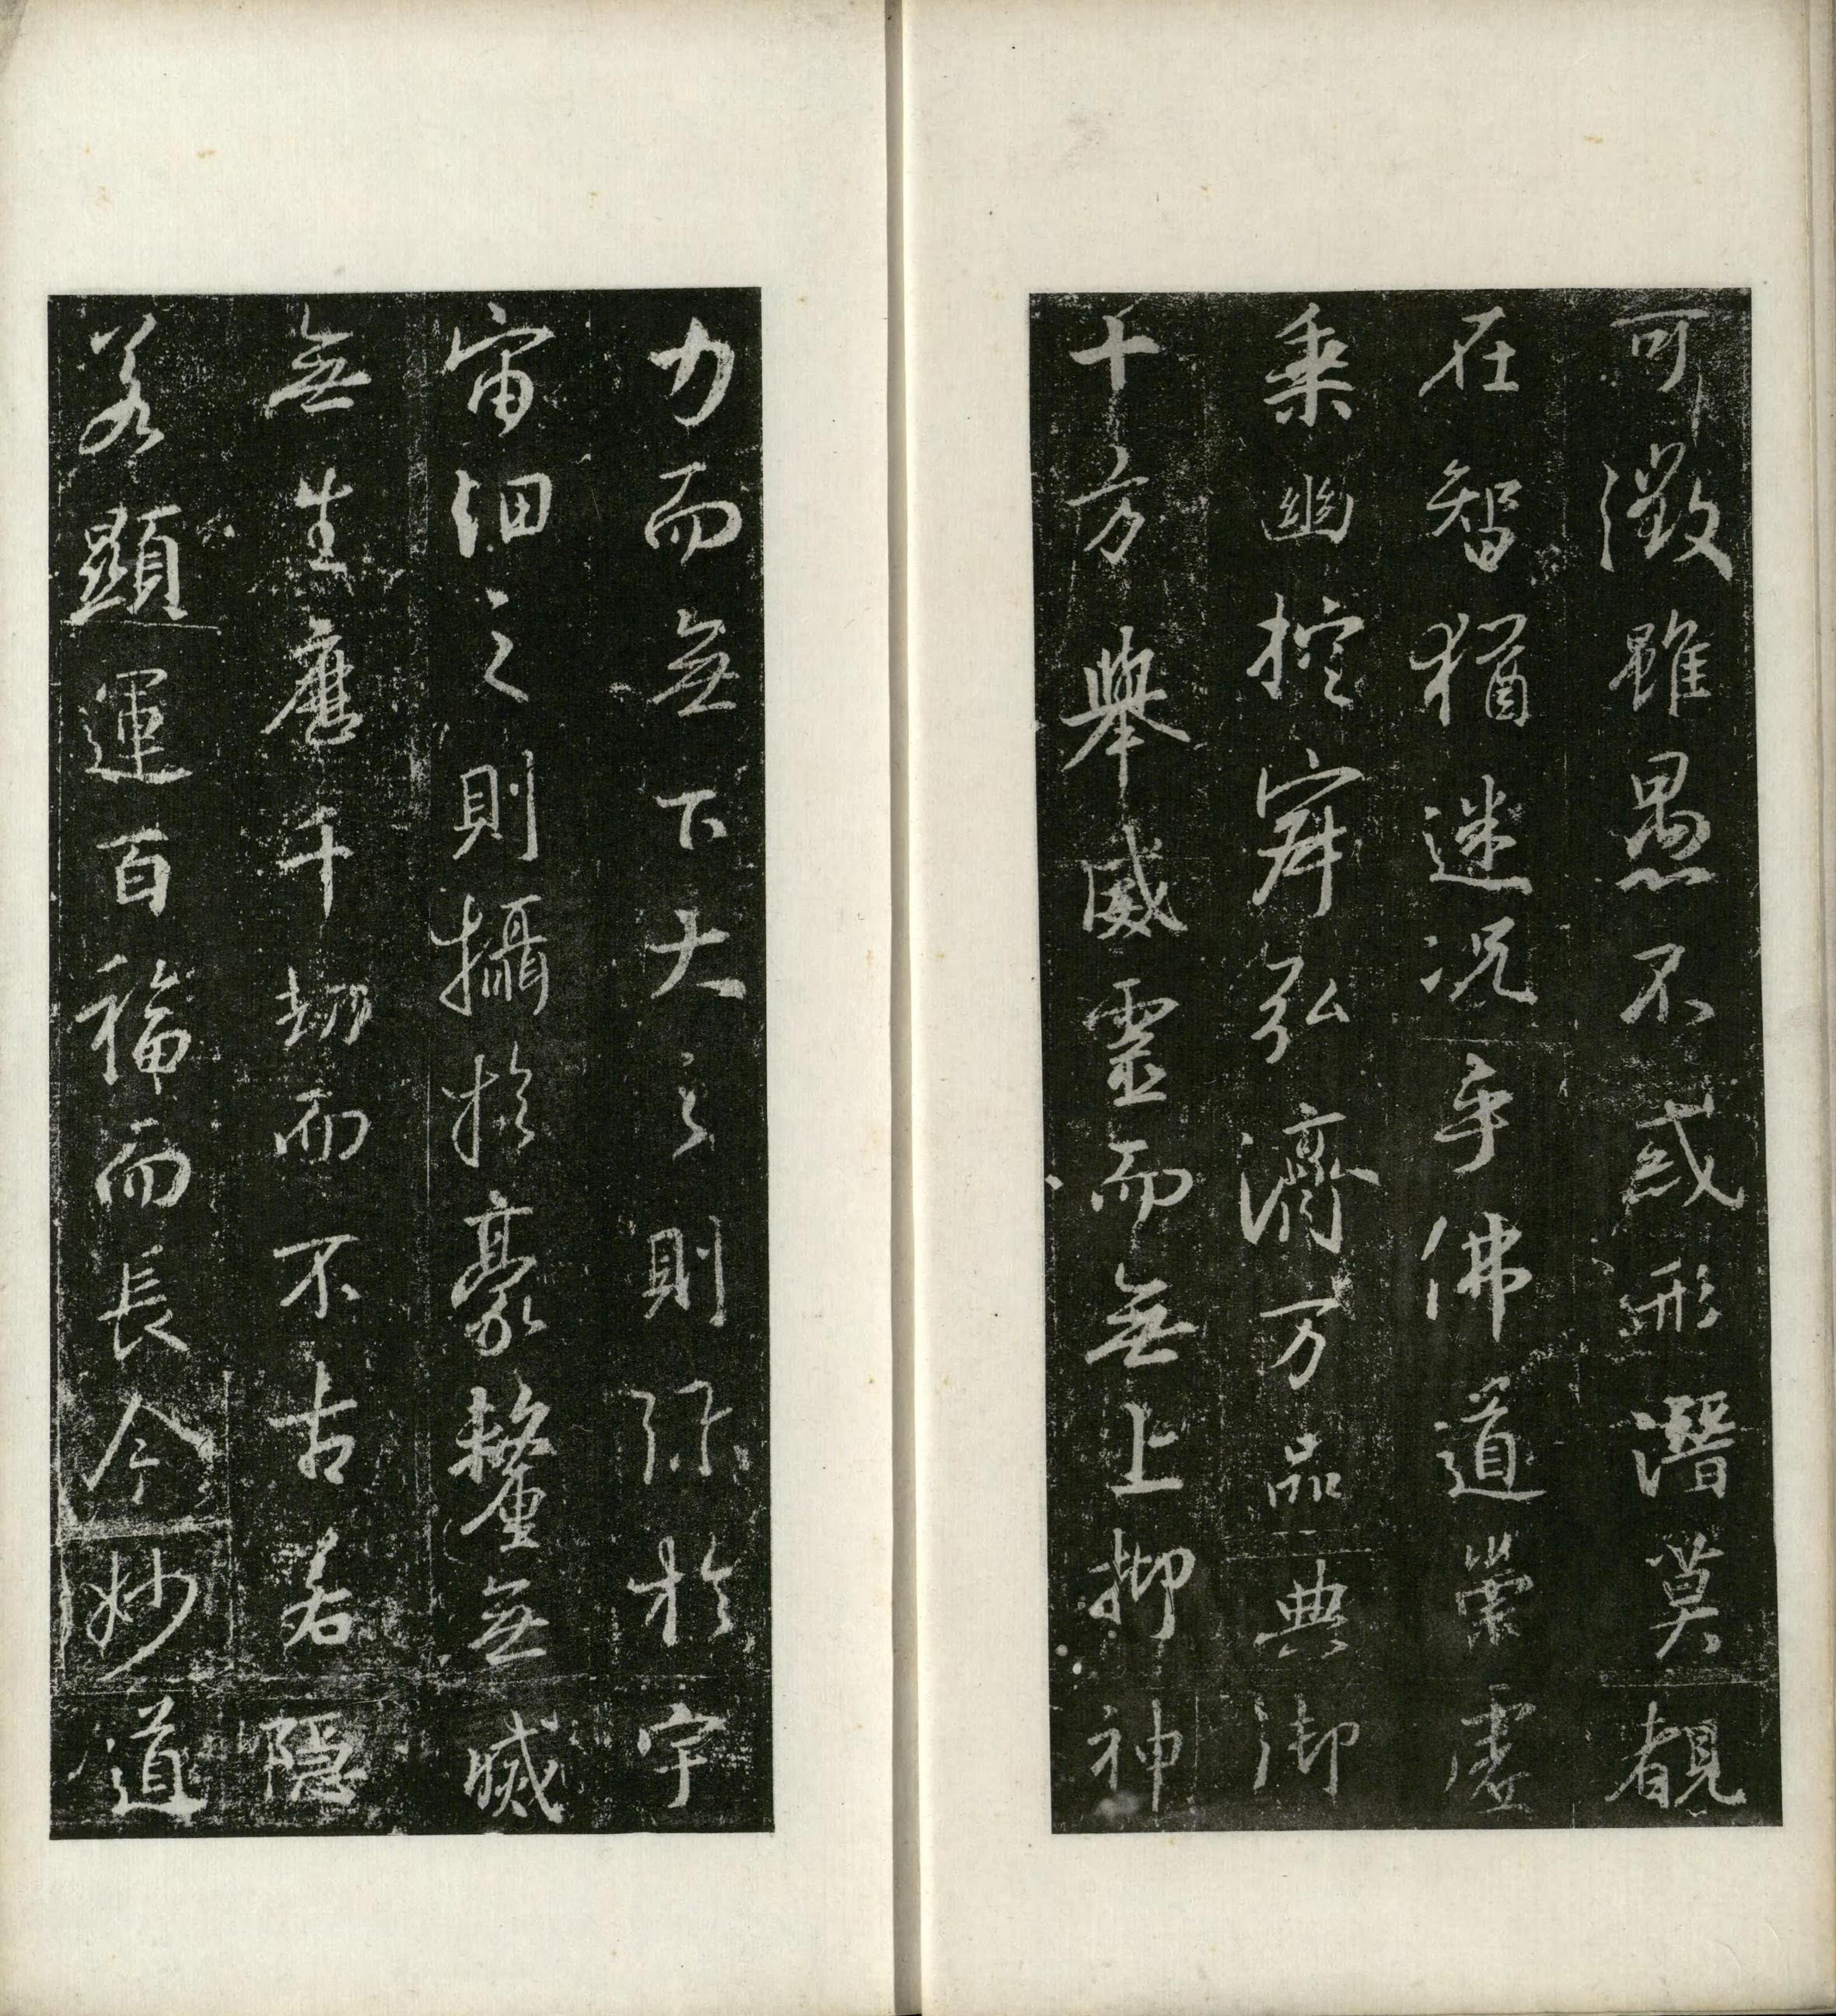 可徵雖愚不惑形潛莫覩
在智猶迷況乎佛道崇虛
乘幽控寂弘濟万品典御
十方舉威靈而無上抑神
力而無下大之則彌於宇
宙細之則攝於豪釐無滅
無生應千劫而不古若隱
若顯運百福而長今妙道